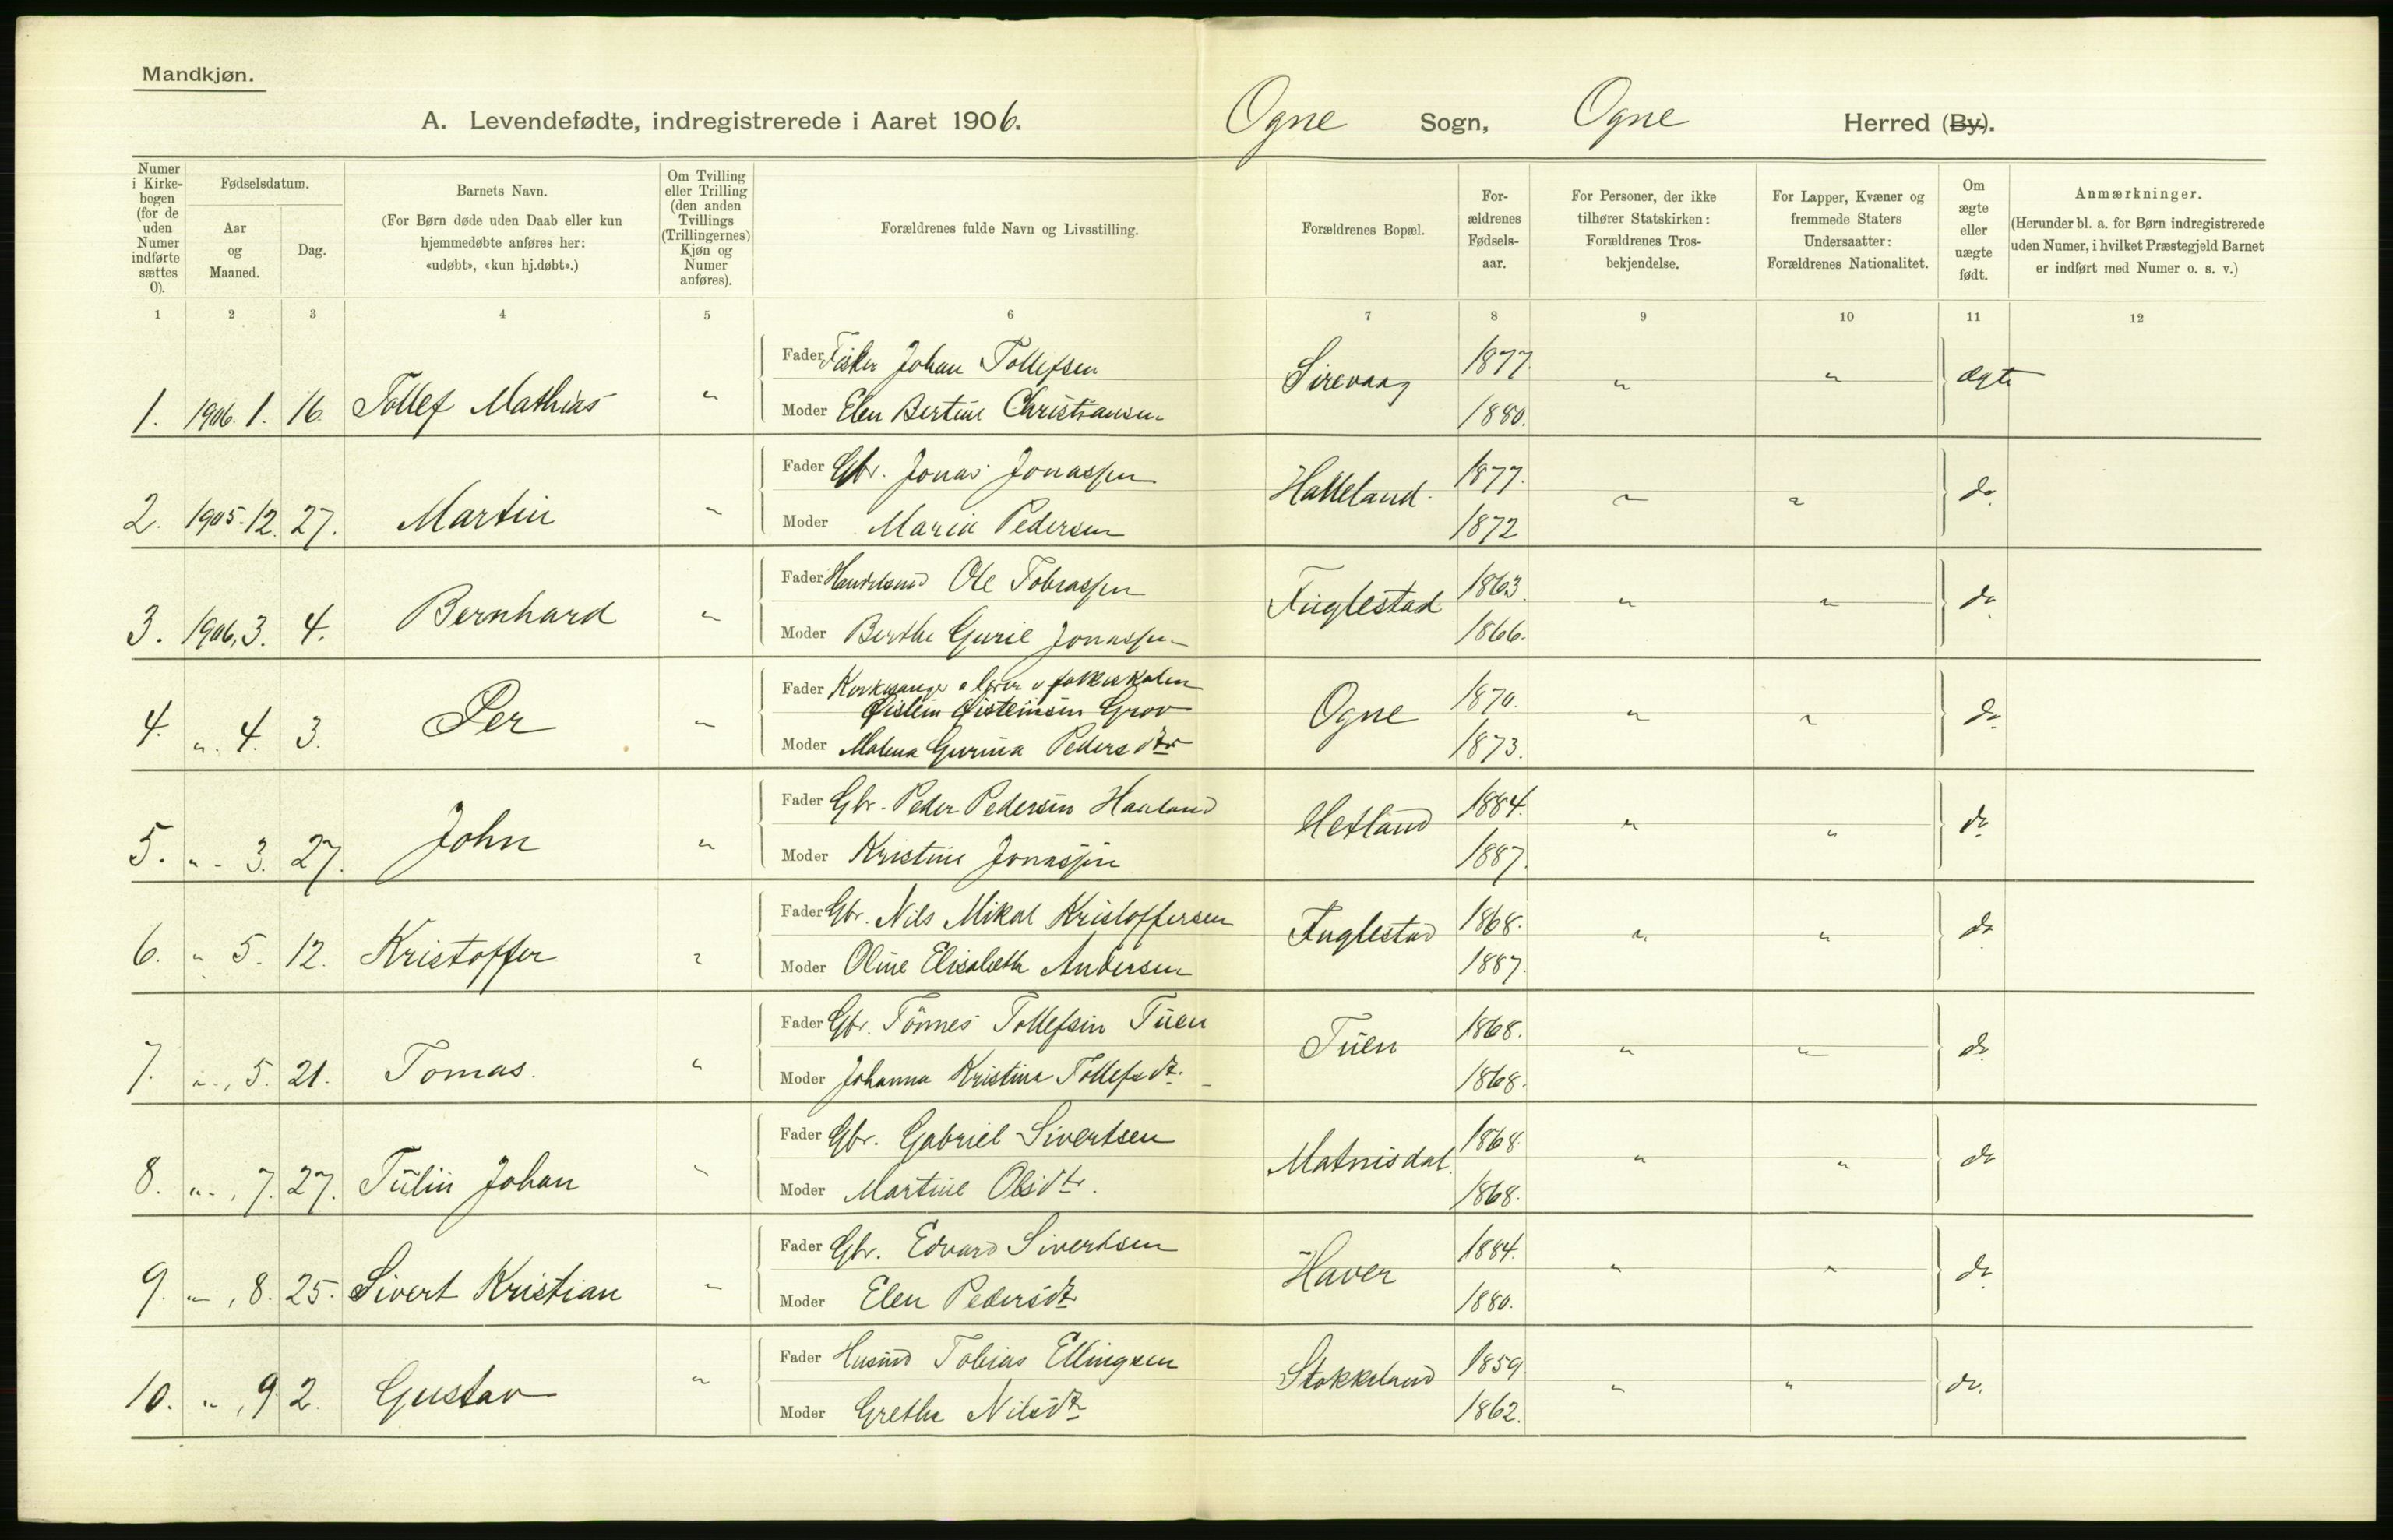 Mandkjøn.
A. Levendefødte, indregistrerede i Aaret 1906.
Ogne Sogn, Ogne Herred (By).
Numer i Kirkebogen (for de uden Numer indførte sættes 0).
Fødselsdatum.
Aar og Maaned.
Dag.
Barnets Navn.
(For Børn døde uden Daab eller kun hjemmedøbte anføres her: «udøbt», «kun hj.døbt».)
Om Tvilling eller Trilling (den anden Tvillings (Trillingernes) Kjøn og Numer anføres).
Forældrenes fulde Navn og Livsstilling.
Forældrenes Bopæl.
Forældrenes Fødselsaar.
For Personer, der ikke tilhører Statskirken: Forældrenes Trosbekjendelse.
For Lapper, Kvæner og fremmede Staters Undersaatter: Forældrenes Nationalitet.
Om ægte eller uægte født.
Anmærkninger.
(Herunder bl. a. for Børn indregistrerede uden Numer, i hvilket Præstegjeld Barnet er indført med Numer o. s. v.)
1 2 3 4 5 6 7 8 9 10 11 12
Fader Fisker Johan Tollefsen Sirevaag 1877. " " ægte
1. 1906. 1. 16. Tollef Mathias " Moder Elen Bertine Christiansen 1880.
Fader Gbr. Jonas Jonassen Halleland 1877. " " do
2. 1905. 12. 27. Martin " Moder Maria Pedersen 1872
Fader Handelsmd Ole Tobiassen Fuglestad 1863. " " do
3. 1906, 3. 4. Bernhard " Moder Berthe Gurie Jonassen 1866.
Fader Kirkesanger o lærer v folkeskolen
Øistein Øisteinsen Grov Ogne 1870. " " do
4. " 4. 3. Per " Moder Malena Gurina Pedersdtr 1873.
Fader Gbr. Peder Pedersen Haaland Hetland 1884. " " do
5. " 3. 27. John " Moder Kristine Jonassen 1887.
Fader Gbr. Nils Mikal Kristoffersen Fuglestad 1868. " " do
6. " 5. 12. Kristoffer " Moder Oline Elisabeth Andersen 1887.
Fader Gbr. Tönnes Tollefsen Tuen Tuen 1868. " " do
7. ", 5. 21. Tomas. " Moder Johanna Kristina Tollefsdt. 1868.
Fader Gbr. Gabriel Sivertsen Matnisdal. 1868. " " do
8. ", 7. 27. Tulin Johan " Moder Martine Olsdtr. 1868.
Fader Gbr. Edvard Sivertsen Haver 1884. " " do
9. ", 8. 25. Sivert Kristian " Moder Elen Pedersdtr 1880.
Fader Husmd Tobias Ellingsen Stokkeland 1859 " " do.
10. ", 9 2. Gustav " Moder Grethe Nilsdtr 1862.